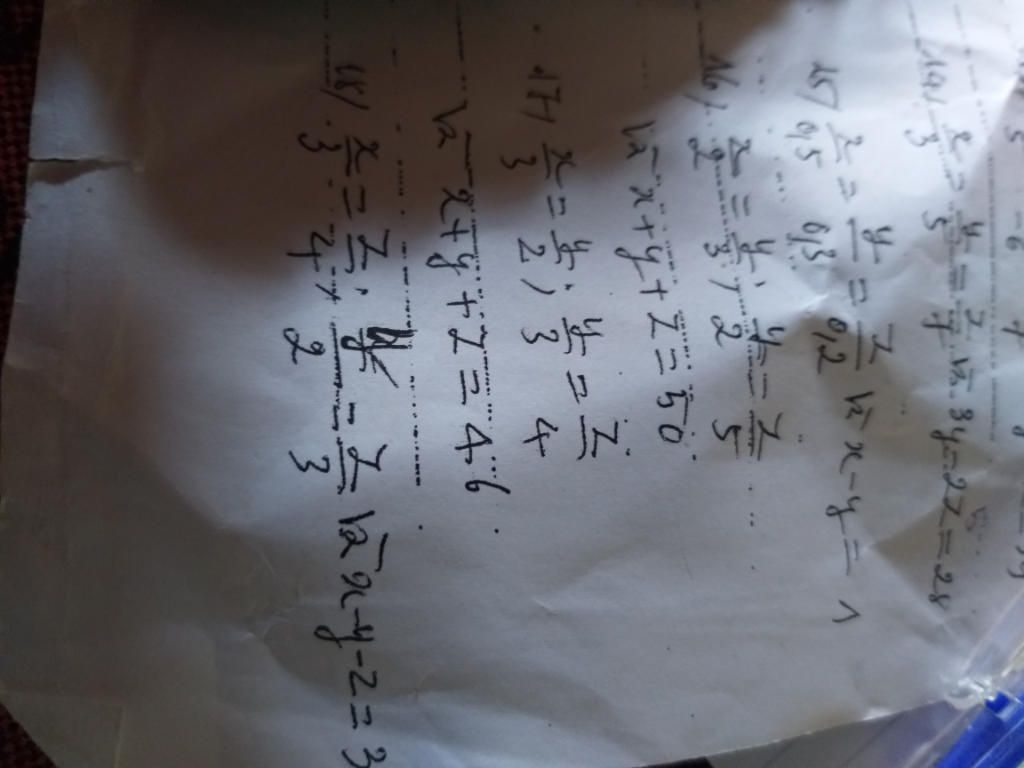 14) x/3 = y/5 = z/7 và 3y - 2z = 28
15) x/0,5 = y/0,3 = z/0,2 và x - y = 1
16) x/2 = y/3; y/2 = z/5
và x + y + z = 50
17) x/3 = y/2; y/3 = z/4
và x + y + z = 46
18) x/3 = z/4; y/2 = z/3 và x - y - z = 3